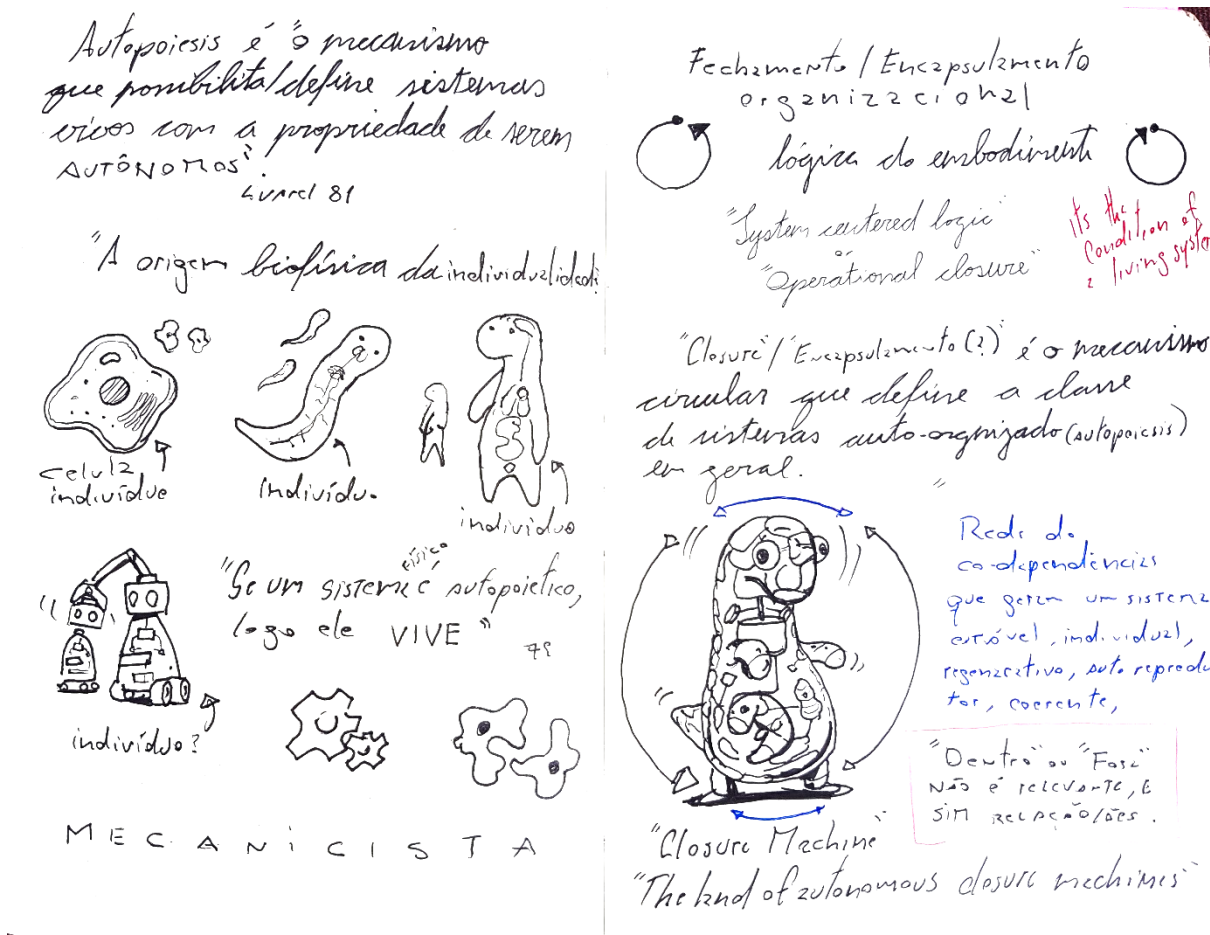 Autopoiesis é "o mecanismo
que possibilita/define sistemas
vivos com a propriedade de serem
AUTÔNOMOS".
81
"A origem biofísica da individualidade"
celula
indivíduo
indivíduo
indivíduo
"Se um sistema FÍSICO é autopoietico,
logo ele VIVE"
79
indivíduo?
MECANICISTA
Fechamento / Encapsulamento
organizacional
lógica do embodiment
"System centered logic"
or
"Operational closure"
its the
condition of
a living syste
"Closure"/"Encapsulamento(?)" é o mecanismo
circular que define a classe
de sistemas auto-orgnizado (autopoiesis)
em geral.
"
Rede de
co-dependências
que geram um sistema
estável, individual,
regenerativo, auto reprodu
tor, coerente,
"Dentro" ou "Fora"
NÃO é relevante, E
SIM RELAÇÃO/ÕES.
"Closure Machine"
"The kind of autonomous closure machines"